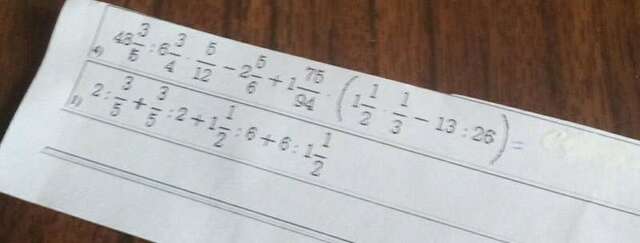 4) 48 3/5 : 6 3/4 · 5/12 − 2 5/6 + 1 75/94 · (1 1/2 · 1/3 − 13 : 26) =
5) 2 : 3/5 + 3/5 : 2 + 1 1/2 : 6 + 6 : 1 1/2